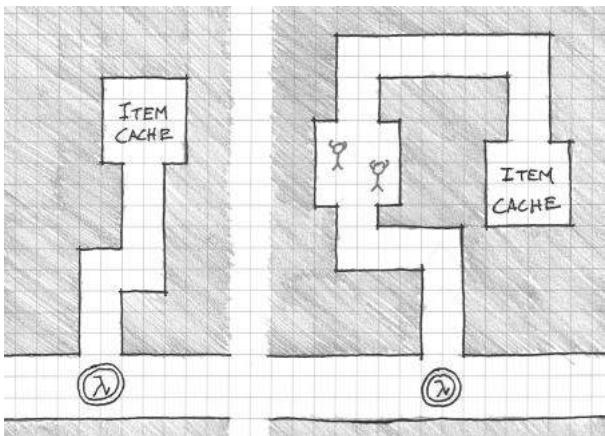 ITEM
CACHE
ITEM
CACHE
λ
λ